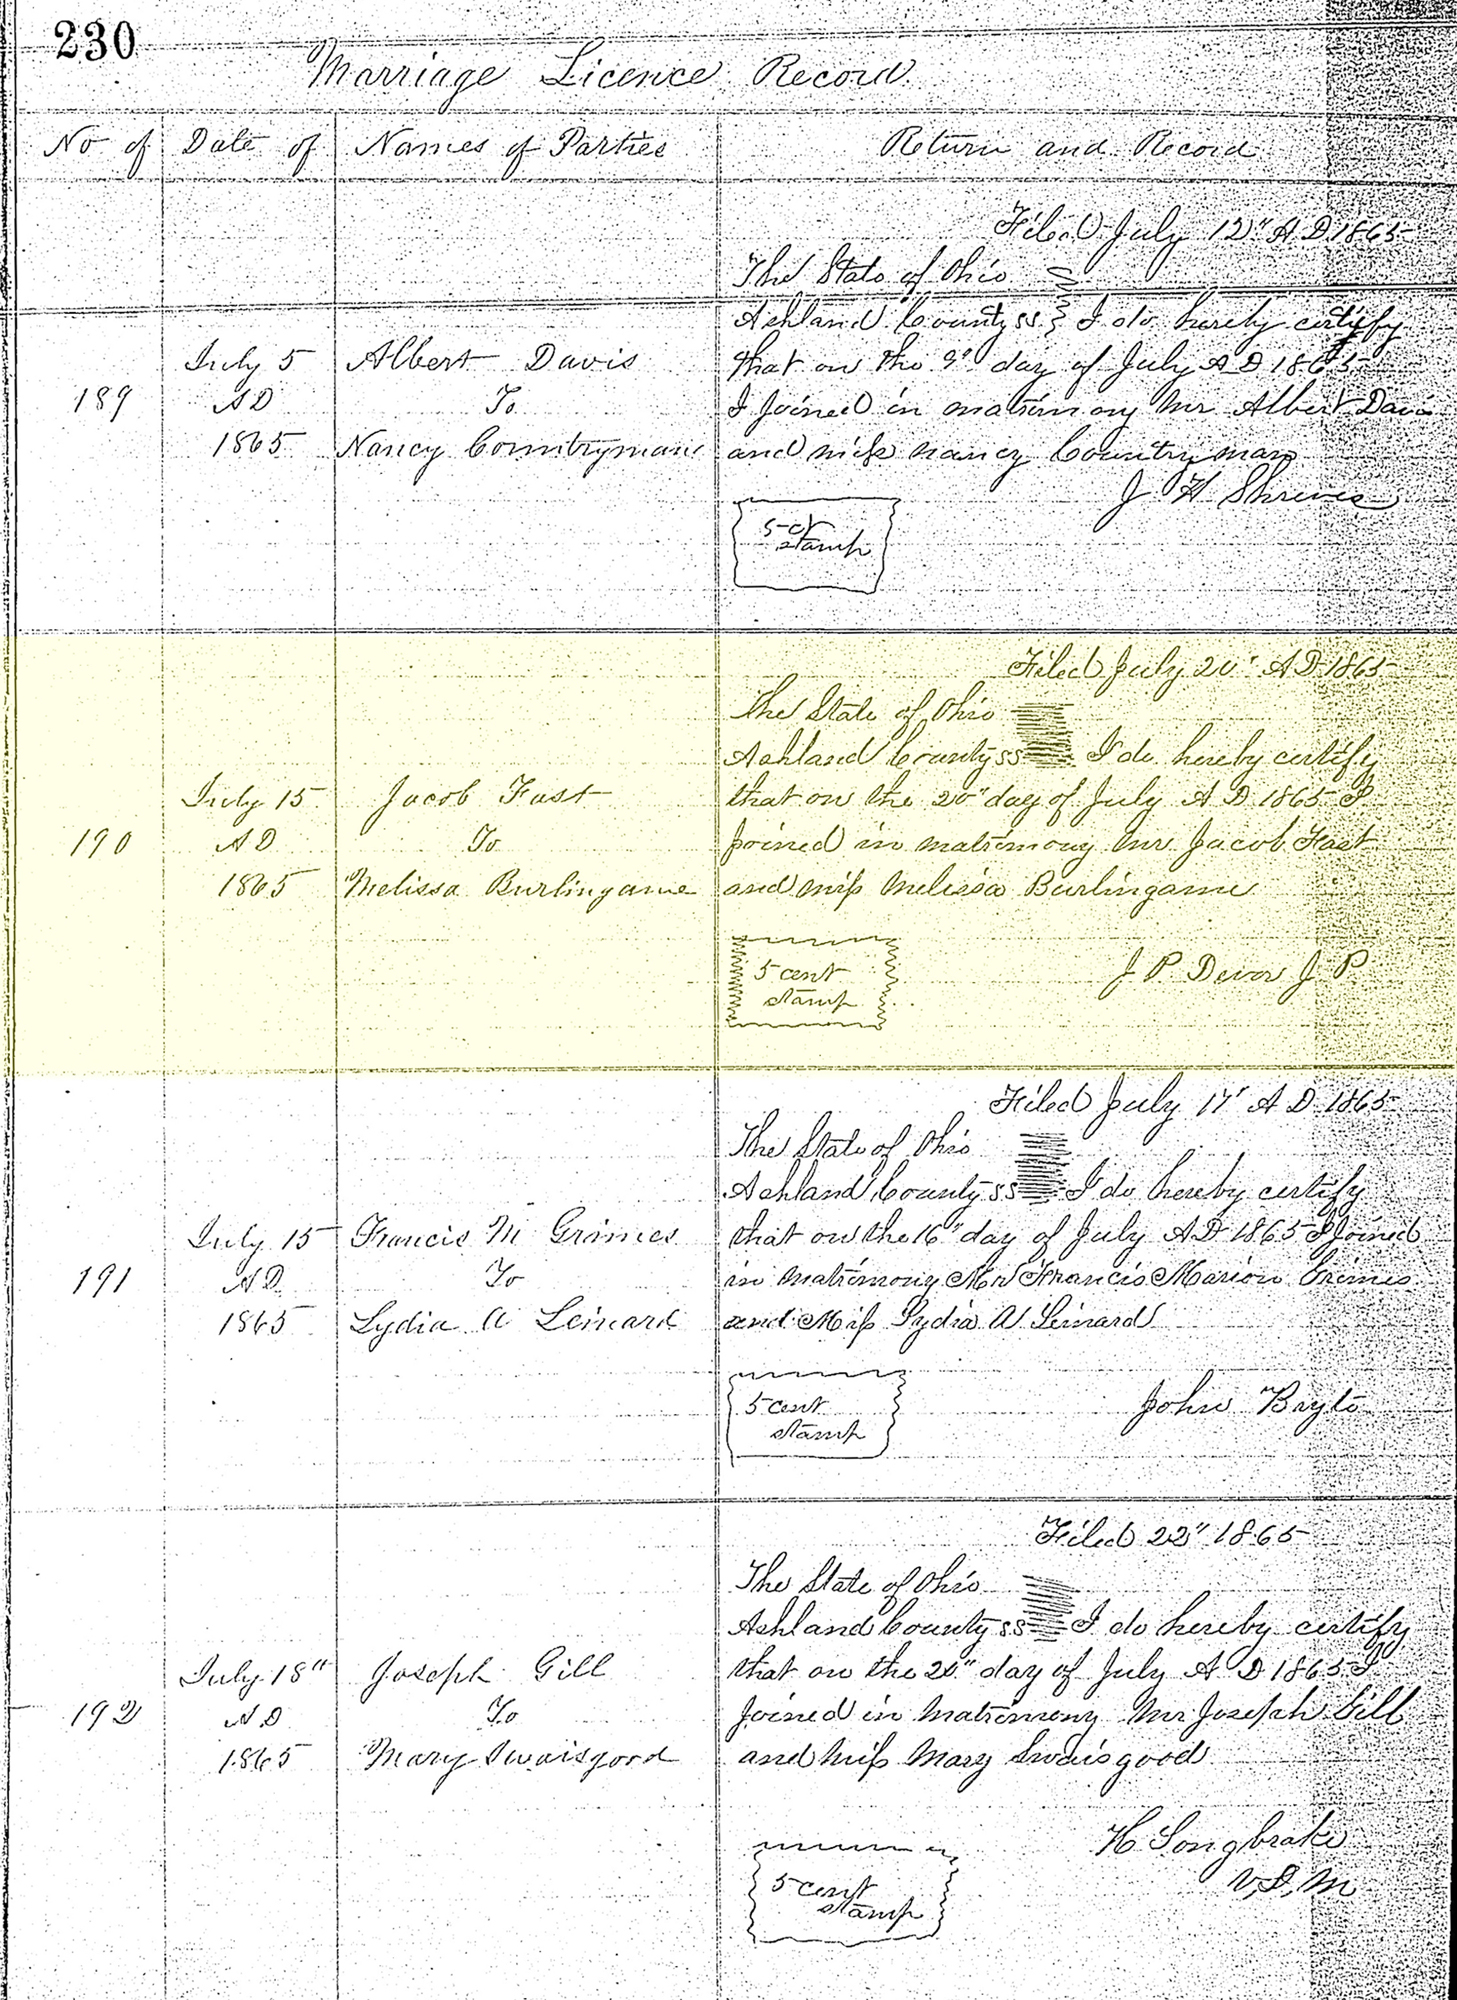 230
Marriage Licence Record
No of Date of Names of Parties Return and Record
Filed July 12" A D 1865
The State of Ohio
Ashland County ss I do hereby certify
July 5 Albert Davis that on the 9" day of July A D 1865
189 A D To I joined in matrimony Mr Albert Davis
1865 Nancy Countryman and miss Nancy Countryman
J H Shreves
5 ct
stamp
Filed July 20" A D 1865
The State of Ohio
Ashland County ss I do hereby certify
July 15 Jacob Fast that on the 20" day of July A D 1865 I
190 A D To joined in matrimony Mr Jacob Fast
1865 Melissa Burlingame and miss Melissa Burlingame
5 cent
stamp
J P Devor J P
Filed July 17" A D 1865
The State of Ohio
Ashland County ss I do hereby certify
July 15 Francis M Grimes that on the 16" day of July A D 1865 I joined
191 A D To in matrimony Mr Francis Marion Grimes
1865 Lydia A Leinard and Miss Lydia A Leinard
5 cent
stamp
John Bryte
Filed 22" 1865
The State of Ohio
Ashland County ss I do hereby certify
July 18" Joseph Gill that on the 20" day of July A D 1865 I
192 A D To joined in matrimony Mr Joseph Gill
1865 Mary Swaisgood and miss Mary Swaisgood
H Longbrake
V, D, M
5 cent
stamp